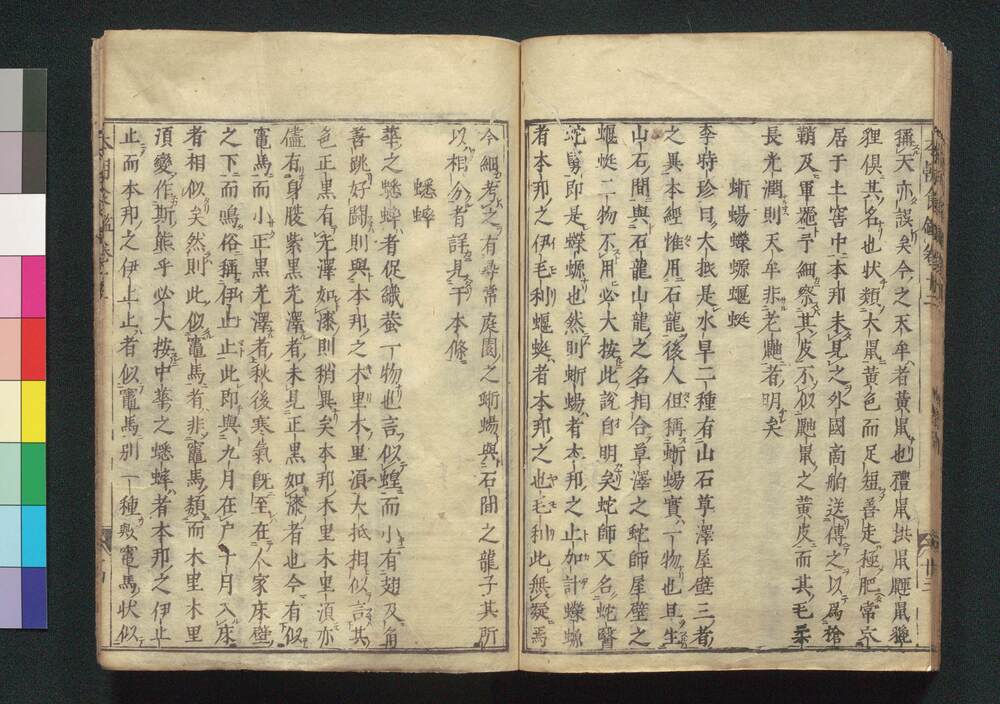 稱天亦誤矣今之天牟者黃鼠也禮鼠拱鼠鼴鼠
狸俱其名也状類大鼠黃色而足短善走極肥常穴
居于土窖中本邦未見之外國商舶送傳之以為槍
鞘及軍𨉖予細察其皮不似鼬鼠之黃皮而其毛柔
長光潤則天牟非老鼬者明矣
蜥蜴蠑螈蝘蜓
李時珍曰大抵是水旱二種有山石草澤屋壁三者
之異本經惟用石龍後人但稱蜥蜴實一物也且生
山石間與石龍山龍之名相合草澤之蛇師屋壁之
蝘蜓二物不用必大按此說自明矣蛇師又名蛇醫
蛇舅即是蠑螈也然則蜥蜴者本邦之止加計蠑螈
者本邦之伊毛利蝘蜓者本邦之也毛利此無疑焉
今細考之有尋常庭園之蜥蜴與石間之龍子其所
以相分者詳見于本條
蟋蟀
華之蟋蟀者促織蛬一物也言似蝗而小有翅及角
善跳好鬪則與本邦之木里木里湏大抵相似言其
色正黑有光澤如漆則稍異矣本邦木里木里湏亦
儘有身股紫黑光澤者未見正黑如漆者也今有似
竈馬而小正黑光澤者秋後寒氣既至在人家床壁
之下而鳴俗稱伊止止此即與九月在户十月入床
者相似矣然則此似竈馬者非竈馬類而木里木里
湏變作斯熊乎必大按中華之蟋蟀者本邦之伊止
止而本邦之伊止止者似竈馬別一種歟竈馬状似